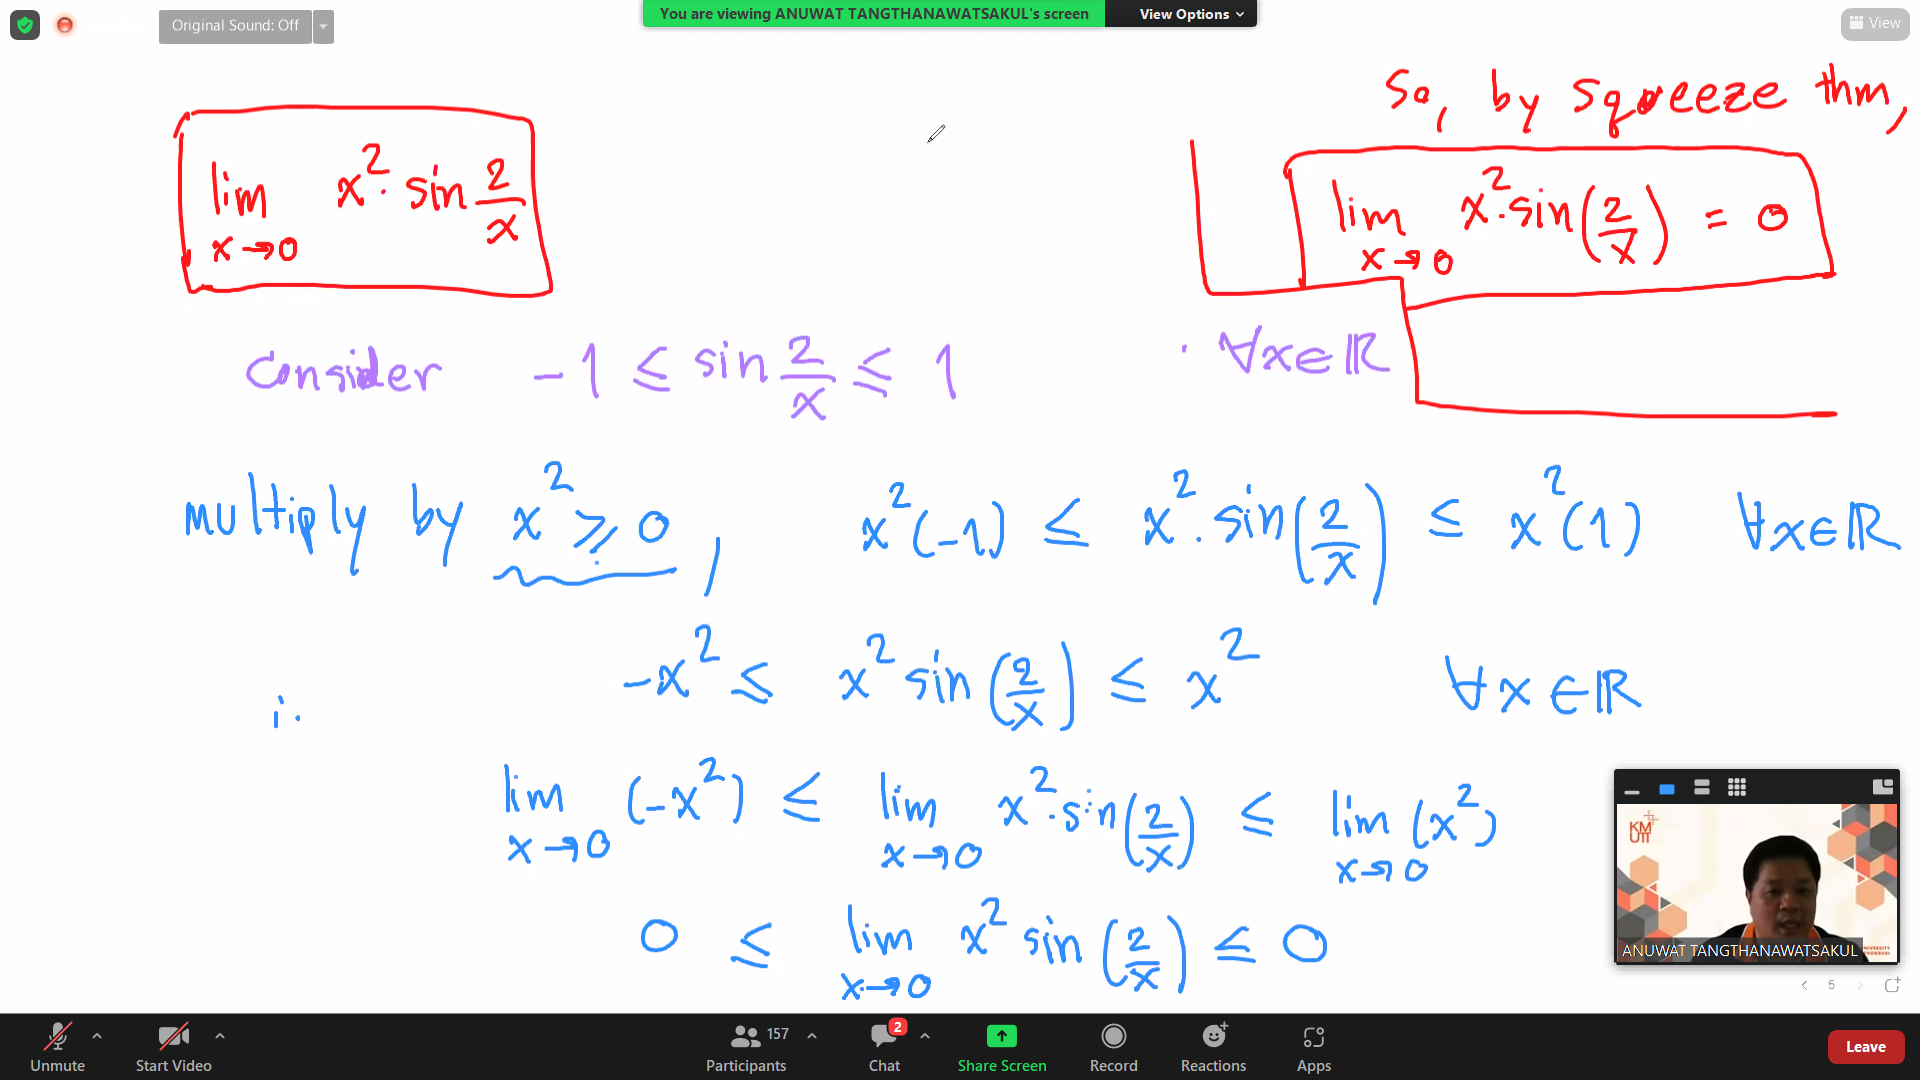 Original Sound: Off
You are viewing ANUWAT TANGTHANAWATSAKUL's screen
View Options
View
So, by squeeze thm,
lim x→0 x²· sin 2/x
lim x→0 x²·sin(2/x) = 0
Consider -1 ≤ sin 2/x ≤ 1 · ∀x∈ℝ
multiply by x² ≥ 0, x²(-1) ≤ x²·sin(2/x) ≤ x²(1) ∀x∈ℝ
-x² ≤ x² sin(2/x) ≤ x² ∀x∈ℝ
lim x→0 (-x²) ≤ lim x→0 x²·sin(2/x) ≤ lim x→0 (x²)
0 ≤ lim x→0 x² sin(2/x) ≤ 0
KM
UTT
ANUWAT TANGTHANAWATSAKUL
5
Unmute
Start Video
157
Participants
2
Chat
Share Screen
Record
Reactions
Apps
Leave